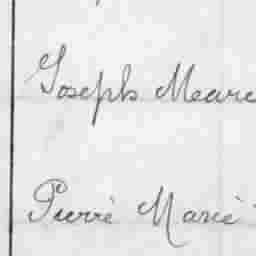 Joseph Meare
Pierre Marie